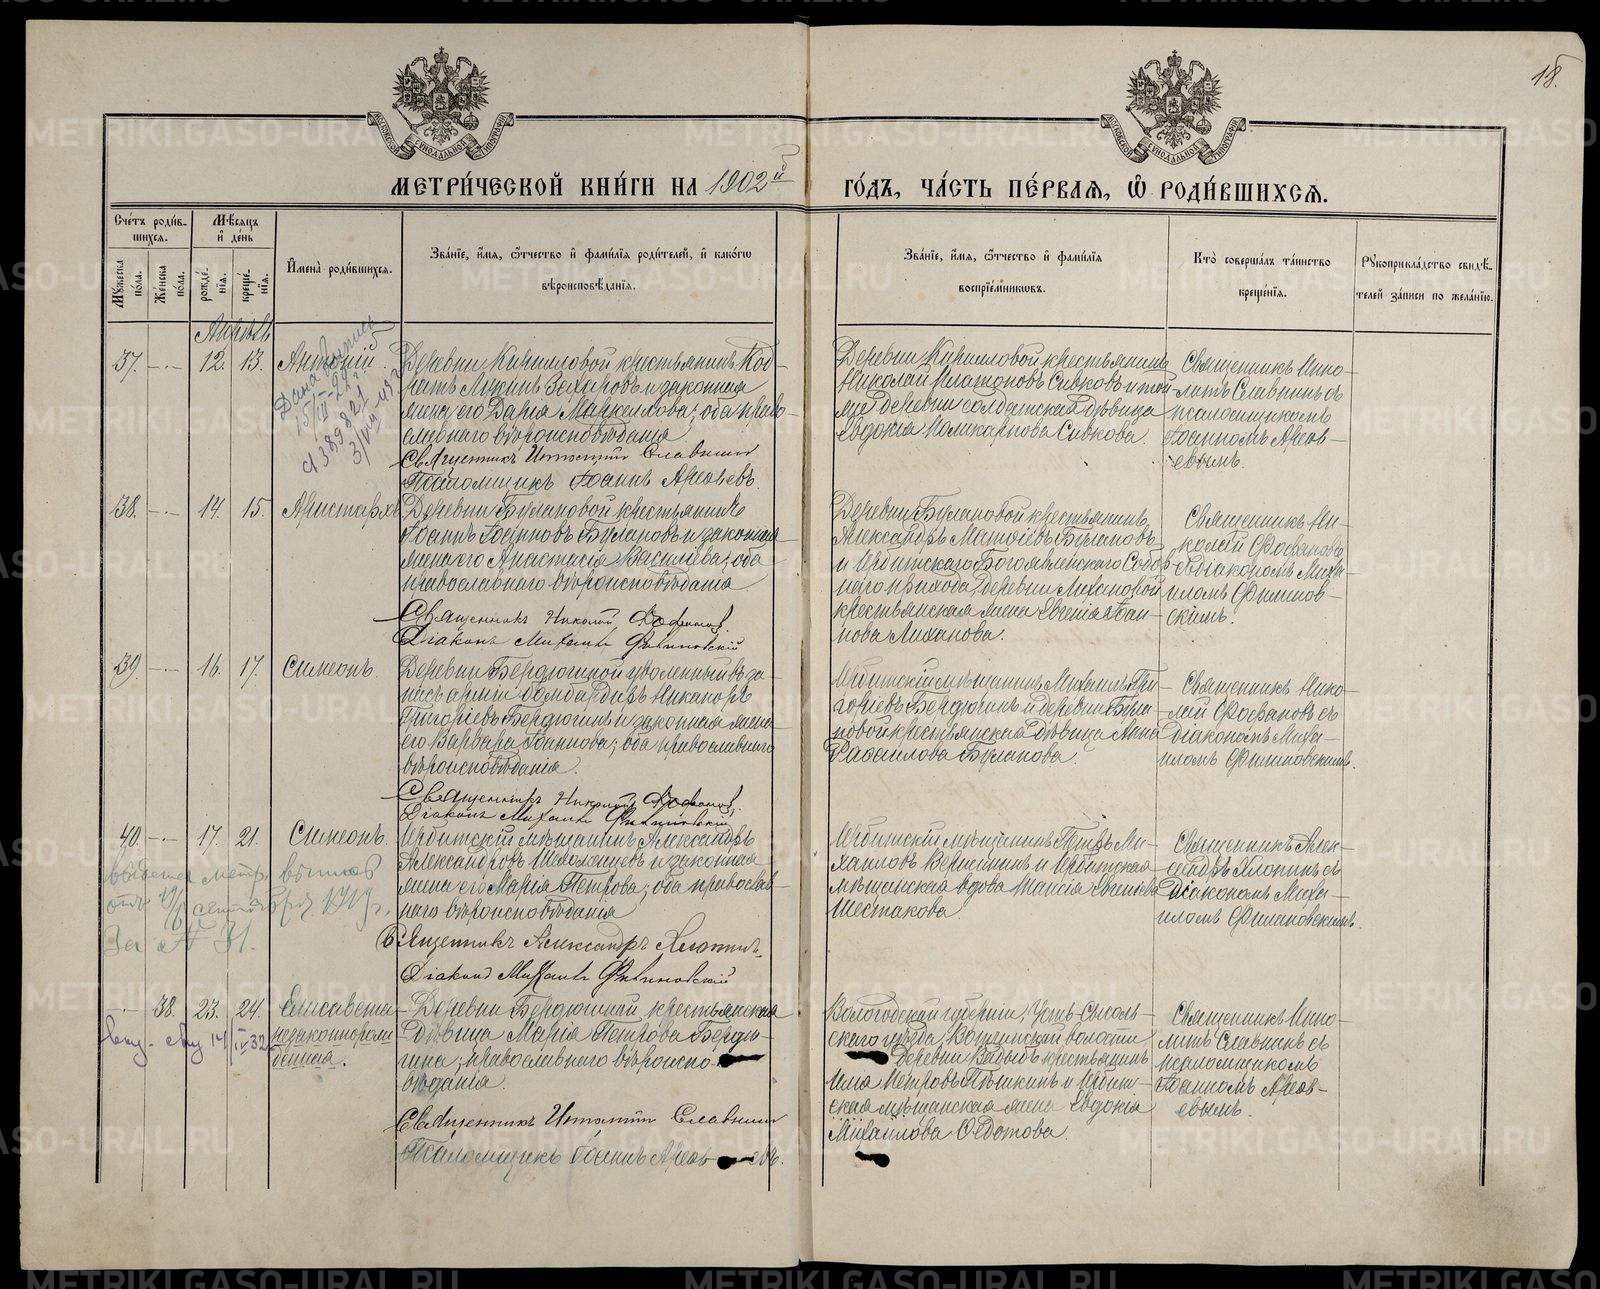 18.
МЕТРИ́ЧЕСКОЙ КНИ́ГИ НА 1902й ГО́ДЪ, ЧА́СТЬ ПЕ́РВАЯ, Ѿ РОДИ́ВШИХСЯ.
Сче́тъ роди́вшихся.
Му́жеска по́ла.
Же́нска по́ла.
Мѣ́сяцъ и҆ де́нь
рожде́нія.
креще́нія.
И҆мена̀ роди́вшихся.
Зва́ніе, и҆́мя, ѻ҆́тчество и҆ фами́лія роди́телей, и҆ како́гѡ
вѣроисповѣ́данія.
Зва́ніе, и҆́мя, ѻ҆́тчество и҆ фами́лія
воспріе́мникѡвъ.
Кто̀ соверша́лъ та́инство
креще́нія.
Рукоприкла́дство свидѣ́-
телей за́писи по жела́нію.
Апрѣль
37. 12. 13. Антоній.
Деревни Кирилловой крестьянинъ Код-
ратъ Захаровъ и законная
жена его Дарія Маркелова; оба право-
славнаго вѣроисповѣданія
Священникъ Иннокентій Славнинъ
Псаломщикъ Іоаннъ
Деревни Кирилловой крестьянинъ
Николай Платоновъ Сивковъ и той
же деревни солдатская дѣвица
Евдокія Поликарпова Сивкова.
Священникъ
Славнинъ съ
псаломщикомъ
Іоанномъ
38. 14. 15. Аристархъ
Деревни Булановой крестьянинъ
Іоаннъ Іоанновъ Булановъ и законная
жена его Анастасія Васильева; оба
православнаго вѣроисповѣданія
Священникъ Николай Фофановъ.
Діаконъ Михаилъ Филиповскій
Деревни Булановой крестьянинъ
Александръ Матѳіевъ Булановъ
и Ирбитскаго Богоявленскаго Собор-
наго прихода, деревни Лихановой
крестьянская жена Евгенія Іоан-
нова Лиханова.
Священникъ Ни-
колай Фофановъ
съ діакономъ Миха-
иломъ Филипов-
скимъ.
39. 16. 17. Симеонъ.
Деревни Бердюгиной уволенный въ за-
пасъ арміи бомбардиръ Никаноръ
Григоріевъ Бердюгинъ и законная жена
его Варвара Іоаннова; оба православнаго
вѣроисповѣданія.
Священникъ Николай Фофановъ.
Діаконъ Михаилъ Филиповскій
Ирбитскій мѣщанинъ Михаилъ Гри-
горіевъ Бердюгинъ и деревни Була-
новой крестьянская дѣвица Анна
Буланова.
Священникъ Нико-
лай Фофановъ съ
діакономъ Миха-
иломъ Филиповскимъ.
40. 17. 21. Симеонъ.
Ирбитскій мѣщанинъ Александръ
Александровъ и законная
жена его Марія Петрова; оба православ-
наго вѣроисповѣданія
Священникъ Александръ Хлопинъ.
Діаконъ Михаилъ Филиповскій
Ирбитскій мѣщанинъ Петръ Ми-
хаиловъ Вершининъ и Ирбитская
мѣщанская вдова Таисія Евгеніева
Шестакова.
Священникъ Алек-
сандръ Хлопинъ съ
діакономъ Миха-
иломъ Филиповскимъ.
38. 23. 24. Елисавета
незаконнорож-
денная.
Деревни Бердюгиной крестьянская
дѣвица Марія Петрова Бердю-
гина; православнаго вѣроиспо-
вѣданія.
Священникъ Иннокентій Славнинъ
Псаломщикъ Іоаннъ
Вологодской губерніи, Усть-Сысоль-
скаго уѣзда, волости
деревни крестьянинъ
Илія Петровъ и Ирбит-
ская мѣщанская жена Евдокія
Михаилова Ѳедотова.
Священникъ
Славнинъ съ
псаломщикомъ
Іоанномъ